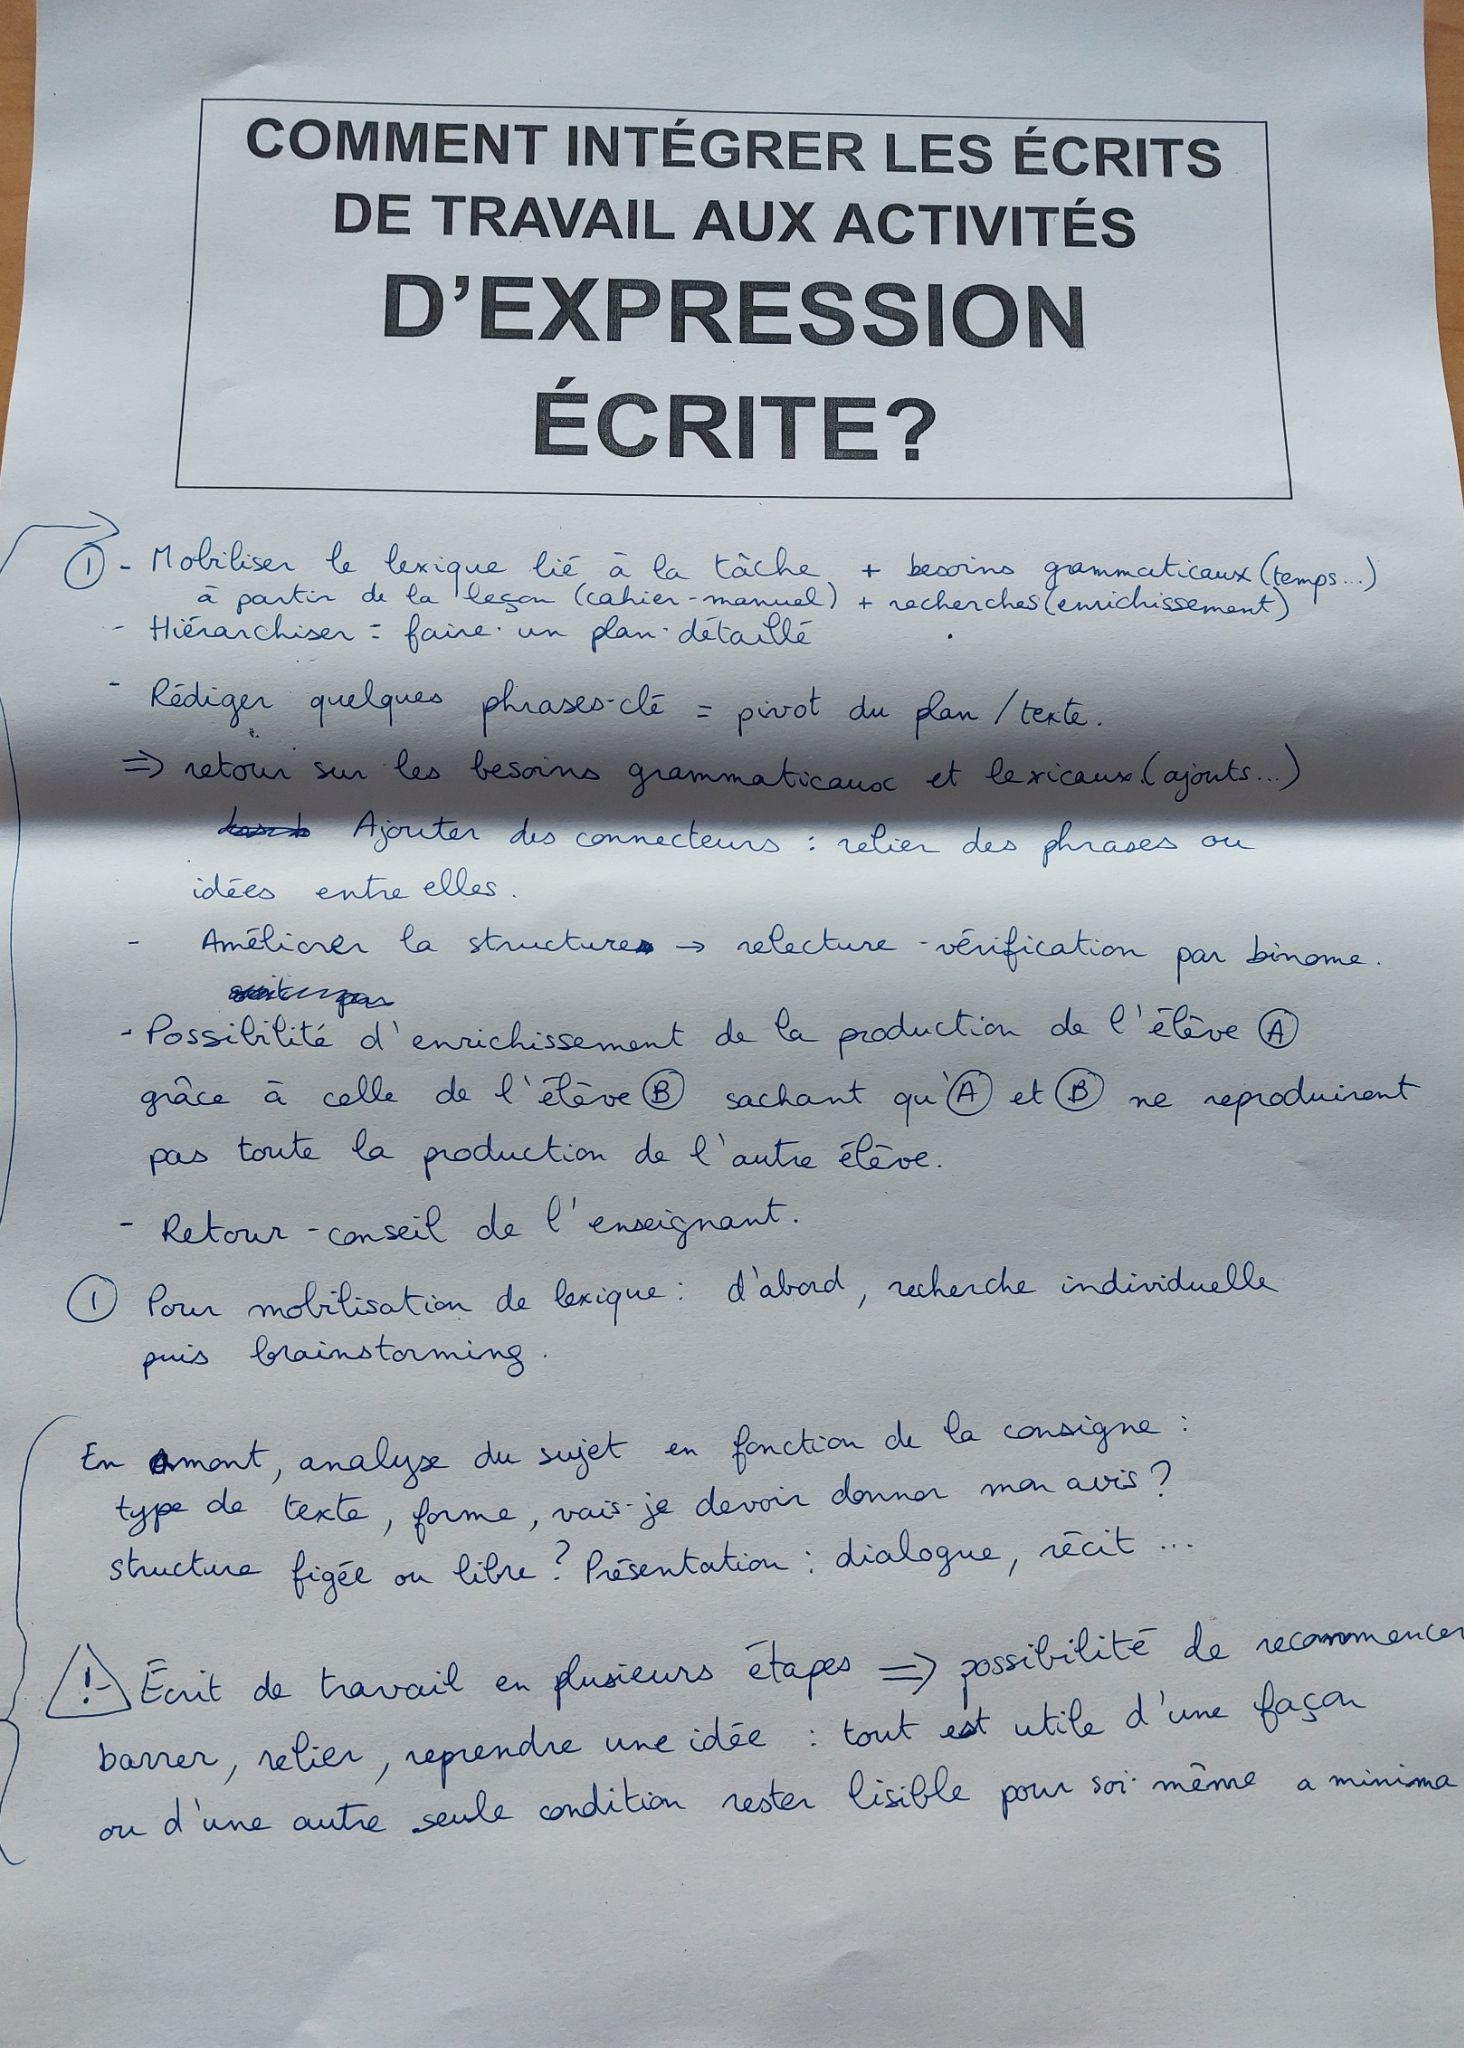 COMMENT INTÉGRER LES ÉCRITS
DE TRAVAIL AUX ACTIVITÉS
D'EXPRESSION
ÉCRITE?
① - Mobiliser le lexique lié à la tâche + besoins grammaticaux (temps...)
à partir de la leçon (cahier-manuel) + recherches (enrichissement)
- Hiérarchiser = faire un plan détaillé
- Rédiger quelques phrases-clé = pivot du plan / texte.
⇒ retour sur les besoins grammaticaux et lexicaux (ajouts...)
Ajouter des connecteurs : relier des phrases ou
idées entre elles.
- Améliorer la structure → relecture - vérification par binome.
- Possibilité d'enrichissement de la production de l'élève Ⓐ
grâce à celle de l'élève Ⓑ sachant qu'Ⓐ et Ⓑ ne reproduiront
pas toute la production de l'autre élève.
- Retour - conseil de l'enseignant.
① Pour mobilisation de lexique : d'abord, recherche individuelle
puis brainstorming.
En amont, analyse du sujet en fonction de la consigne :
type de texte, forme, vais-je devoir donner mon avis ?
structure figée ou libre ? Présentation : dialogue, récit ...
! Écrit de travail en plusieurs étapes ⇒ possibilité de recommencer
barrer, relier, reprendre une idée : tout est utile d'une façon
ou d'une autre seule condition rester lisible pour soi-même a minima